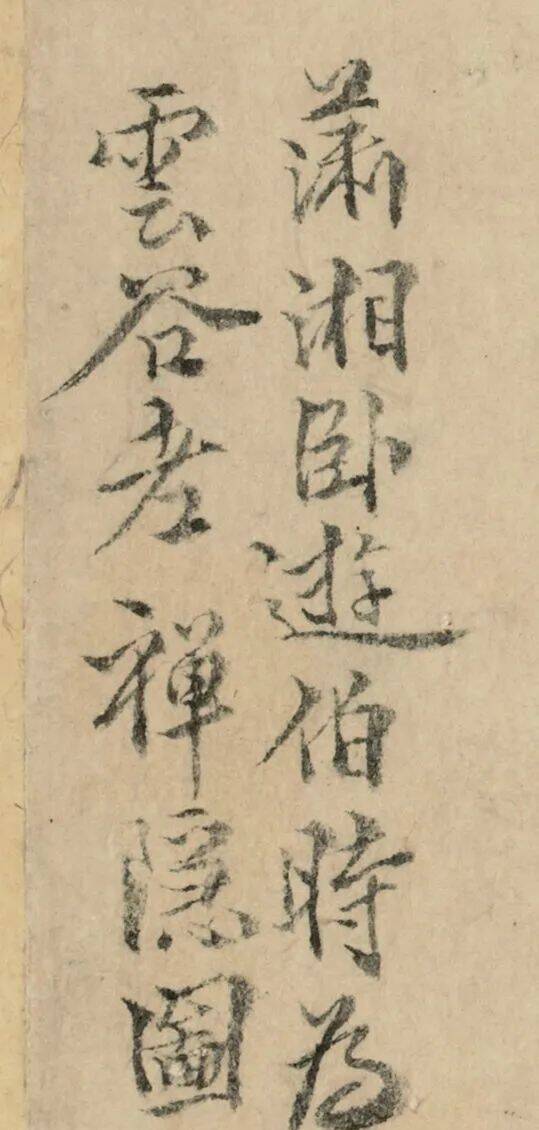 瀟湘卧遊伯時為
雲谷老禪隱圖